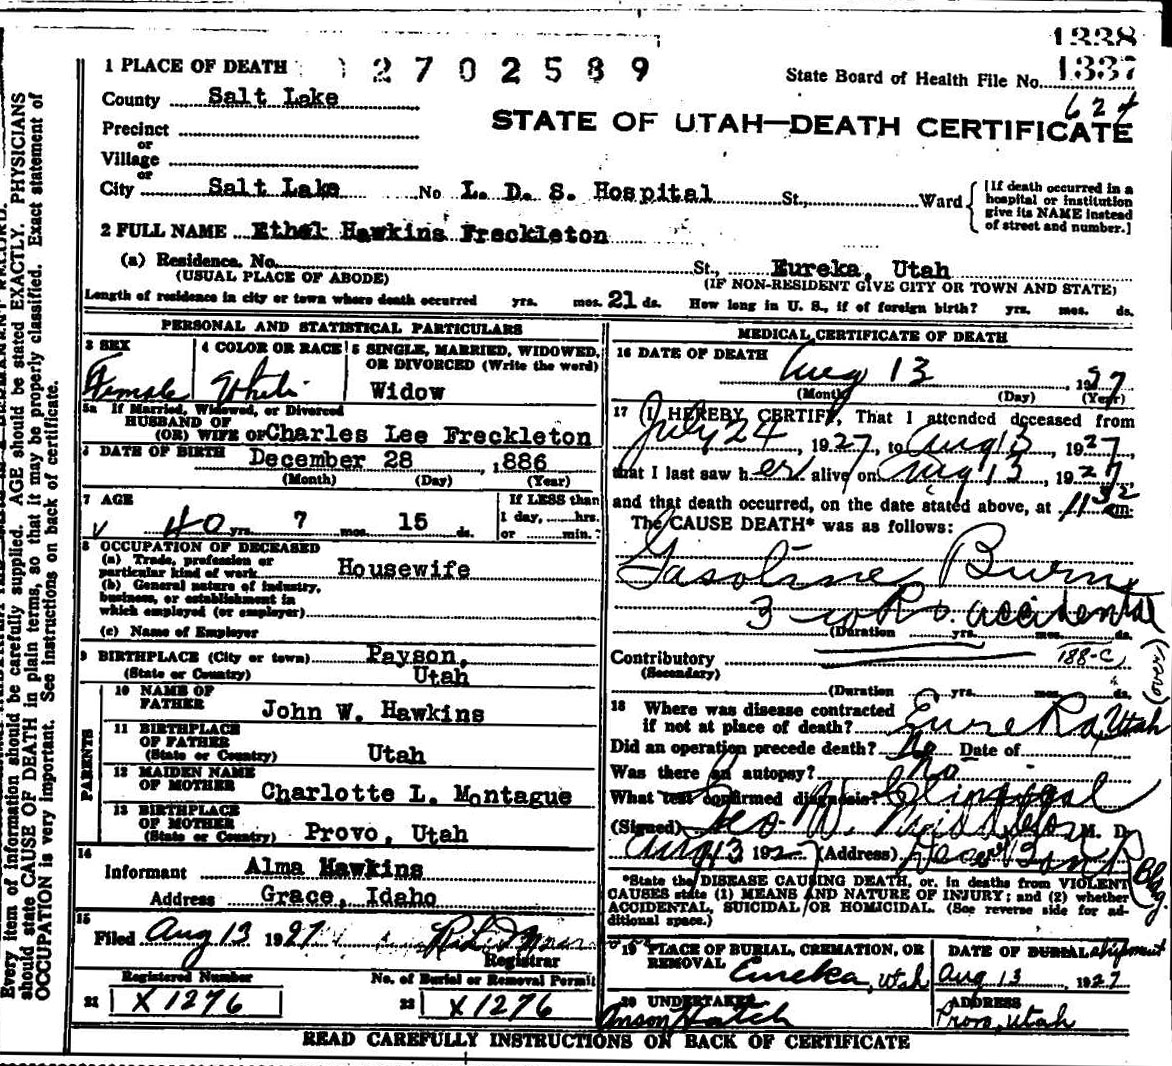 1338
1 PLACE OF DEATH 2702589
State Board of Health File No. 1337
County Salt Lake
624
STATE OF UTAH—DEATH CERTIFICATE
Precinct
or
Village
or
City Salt Lake No L. D. S. Hospital St., Ward
[If death occurred in a
hospital or institution
give its NAME instead
of street and number.]
2 FULL NAME Ethel Hawkins Freckleton
(a) Residence. No. St., Eureka, Utah
(USUAL PLACE OF ABODE) (IF NON-RESIDENT GIVE CITY OR TOWN AND STATE)
Length of residence in city or town where death occurred yrs. mos. 21 ds. How long in U. S., if of foreign birth? yrs. mos. ds.
PERSONAL AND STATISTICAL PARTICULARS
3 SEX
Female
4 COLOR OR RACE
White
5 SINGLE, MARRIED, WIDOWED,
OR DIVORCED (Write the word)
Widow
5a If Married, Widowed, or Divorced
HUSBAND OF
(OR) WIFE OF Charles Lee Freckleton
6 DATE OF BIRTH December 28, 1886
(Month) (Day) (Year)
7 AGE
40 yrs. 7 mos. 15 ds.
If LESS than
1 day, hrs.
or min.
8 OCCUPATION OF DECEASED
(a) Trade, profession or
particular kind of work Housewife
(b) General nature of industry,
business, or establishment in
which employed (or employer)
(c) Name of Employer
9 BIRTHPLACE (City or town) Payson,
(State or Country) Utah
PARENTS
10 NAME OF
FATHER John W. Hawkins
11 BIRTHPLACE
OF FATHER
(State or Country) Utah
12 MAIDEN NAME
OF MOTHER Charlotte L. Montague
13 BIRTHPLACE
OF MOTHER
(State or Country) Provo, Utah
14
Informant Alma Hawkins
Address Grace, Idaho
15
Filed Aug 13 1927
Registrar
Registered Number
21 X1276
No. of Burial or Removal Permit
22 X1276
MEDICAL CERTIFICATE OF DEATH
16 DATE OF DEATH Aug 13, 1927
(Month) (Day) (Year)
17 I HEREBY CERTIFY, That I attended deceased from
July 24, 1927, to Aug 13, 1927
that I last saw her alive on Aug 13, 1927
and that death occurred, on the date stated above, at 11 32 m.
The CAUSE DEATH* was as follows:
Gasoline Burns
3 accidental
(Duration yrs. mos. ds.
Contributory 188-C
(Secondary)
(Duration yrs. mos. ds.
18 Where was disease contracted
if not at place of death? Eureka, Utah
Did an operation precede death? No Date of
Was there an autopsy? No
What test confirmed diagnosis? Clinical
(Signed) Geo W. M. D.
Aug 13 1927 (Address) Bldg.
*State the DISEASE CAUSING DEATH, or, in deaths from VIOLENT
CAUSES state (1) MEANS AND NATURE OF INJURY; and (2) whether
ACCIDENTAL, SUICIDAL OR HOMICIDAL. (See reverse side for ad-
ditional space.)
19 PLACE OF BURIAL, CREMATION, OR
REMOVAL Eureka, Utah
DATE OF BURIAL shipment
Aug 13, 1927
20 UNDERTAKER
Anson Hatch
ADDRESS
Provo, Utah
READ CAREFULLY INSTRUCTIONS ON BACK OF CERTIFICATE
Every item of information should be carefully supplied. AGE should be stated EXACTLY. PHYSICIANS
should state CAUSE OF DEATH in plain terms, so that it may be properly classified. Exact statement of
OCCUPATION is very important. See instructions on back of certificate.